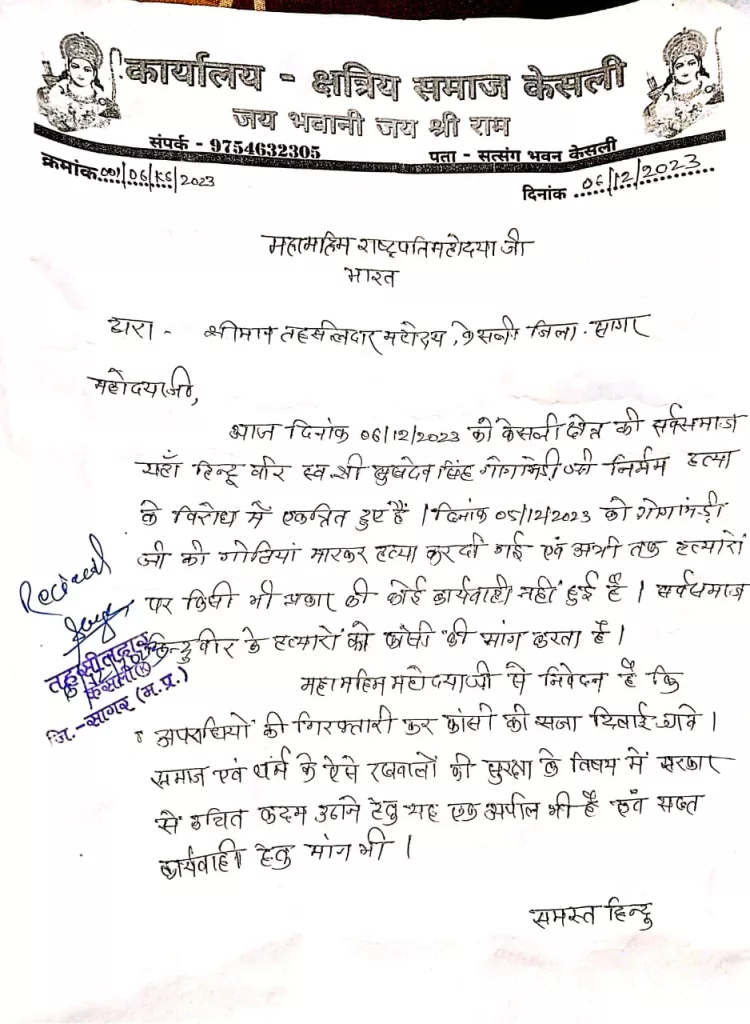 कार्यालय - क्षत्रिय समाज केसली
जय भवानी जय श्री राम
संपर्क - 9754632305
पता - सत्संग भवन केसली
क्रमांक 001/06/KS/2023
दिनांक 06/12/2023
महामहिम राष्ट्रपति महोदया जी
भारत
द्वारा - श्रीमान तहसीलदार महोदय, केसली जिला - सागर
महोदया जी,
आज दिनांक 06/12/2023 को केसली क्षेत्र की सर्वसमाज
यहाँ हिन्दू वीर स्व. श्री सुखदेव सिंह गोगामेड़ी जी निर्मम हत्या
के विरोध में एकत्रित हुए हैं। दिनांक 05/12/2023 को गोगामेड़ी
जी की गोलियां मारकर हत्या कर दी गई एवं अभी तक हत्यारों
पर किसी भी प्रकार की कोई कार्यवाही नहीं हुई है। सर्वसमाज
हिन्दु वीर के हत्यारों को फांसी की मांग करता है।
महामहिम महोदया जी से निवेदन है कि
अपराधियों की गिरफ्तारी कर फांसी की सजा दिलाई जावे।
समाज एवं धर्म के ऐसे रखवालों की सुरक्षा के विषय में सरकार
से उचित कदम उठाने हेतु यह एक अपील भी है एवं सख्त
कार्यवाही हेतु मांग भी।
समस्त हिन्दु
Received
तहसीलदार
केसली
जि.-सागर (म.प्र.)